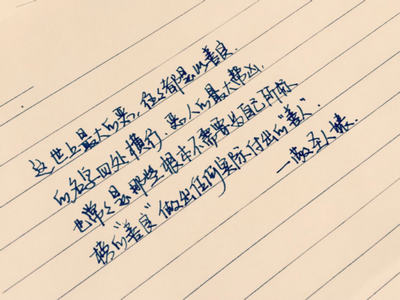 这世上最大的恶，往々都是以善良
的名字四处横行，恶人的最大帮凶，
也常々是那些根本不需要为自己所标
榜的“善良”做出任何实际付出的“善人”.
—圣人